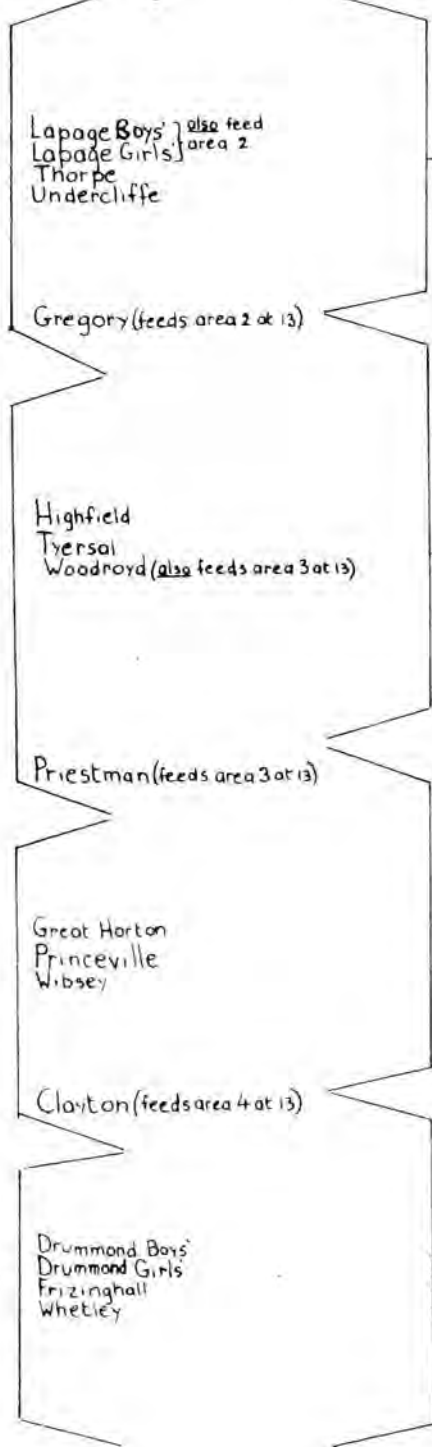 Lapage Boys' } also feed
Lapage Girls' } area 2
Thorpe
Undercliffe
Gregory (feeds area 2 at 13)
Highfield
Tyersal
Woodroyd (also feeds area 3 at 13)
Priestman (feeds area 3 at 13)
Great Horton
Princeville
Wibsey
Clayton (feeds area 4 at 13)
Drummond Boys'
Drummond Girls'
Frizinghall
Whetley